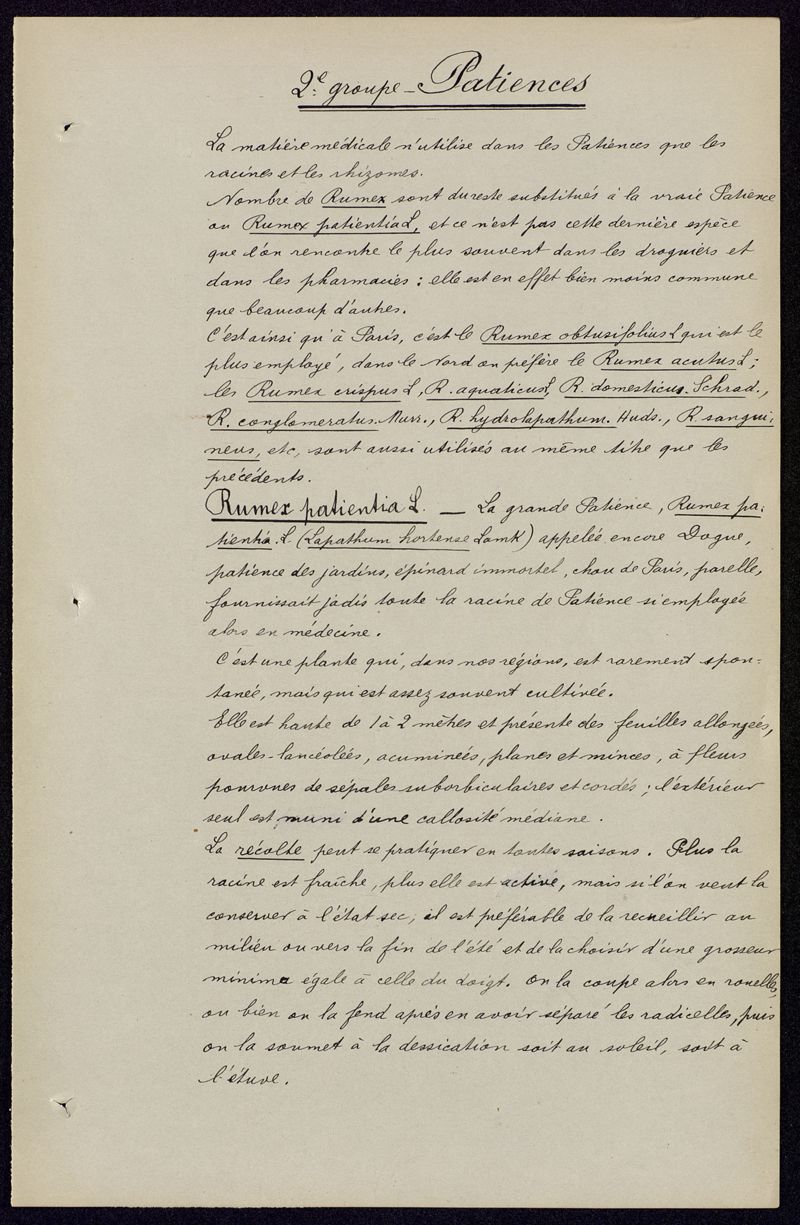 2e groupe - Patiences
La matière médicale n'utilise dans les Patiences que les
racines et les rhizomes.
Nombre de Rumex sont du reste substitués à la vraie Patience
ou Rumex patientia L, et ce n'est pas cette dernière espèce
que l'on rencontre le plus souvent dans les droguiers et
dans les pharmacies : elle est en effet bien moins commune
que beaucoup d'autres.
C'est ainsi qu'à Paris, c'est le Rumex obtusifolius L qui est le
plus employé, dans le Nord on préfère le Rumex acutus L ;
les Rumex crispus L, R. aquaticus L, R. domesticus. Schrad.,
R. conglomeratus. Murr., R. hydrolapathum. Huds., R. sangui-
neus, etc, sont aussi utilisés au même titre que les
précédents.
Rumex patientia L. — La grande Patience, Rumex pa-
tientia. L (Lapathum hortense Lamk) appelée encore Dogue,
patience des jardins, épinard immortel, chou de Paris, parelle,
fournissait jadis toute la racine de Patience si employée
alors en médecine.
C'est une plante qui, dans nos régions, est rarement spon-
tanée, mais qui est assez souvent cultivée.
Elle est haute de 1 à 2 mètres et présente des feuilles allongées,
ovales-lancéolées, acuminées, planes et minces, à fleurs
pourvues de sépales suborbiculaires et cordés ; l'extérieur
seul est muni d'une callosité médiane.
La récolte peut se pratiquer en toutes saisons. Plus la
racine est fraîche, plus elle est active, mais si l'on veut la
conserver à l'état sec, il est préférable de la recueillir au
milieu ou vers la fin de l'été et de la choisir d'une grosseur
minima égale à celle du doigt. On la coupe alors en rouelles,
ou bien on la fend après en avoir séparé les radicelles, puis
on la soumet à la dessication soit au soleil, soit à
l'étuve.